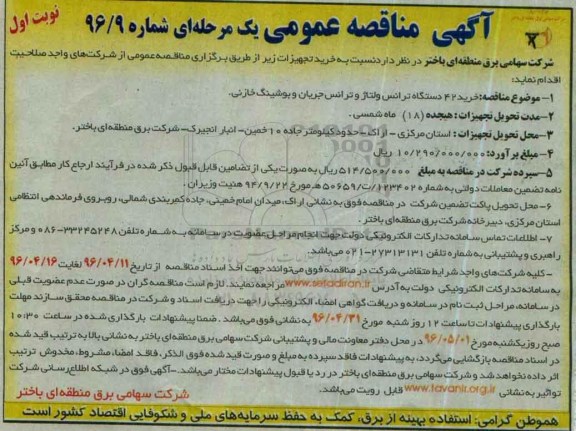 آگهی مناقصه عمومی یک مرحله‌ای شماره ۹۶/۹
نوبت اول
شرکت سهامی برق منطقه‌ای باختر در نظر دارد نسبت به خرید تجهیزات زیر از طریق برگزاری مناقصه عمومی از شرکت‌های واجد صلاحیت
اقدام نماید:
۱- موضوع مناقصه: خرید ۴۲ دستگاه ترانس ولتاژ و ترانس جریان و بوشینگ خازنی.
۲- مدت تحویل تجهیزات: هیجده (۱۸) ماه شمسی.
۳- محل تحویل تجهیزات: استان مرکزی - اراک - حدود کیلومتر جاده ۱۰ خمین - انبار انجیرک - شرکت برق منطقه‌ای باختر.
۴- مبلغ برآورد: ۱۰/۲۹۰/۰۰۰/۰۰۰ ریال
۵- سپرده شرکت در مناقصه به مبلغ ۵۱۴/۵۰۰/۰۰۰ ریال به صورت یکی از تضامین قابل قبول ذکر شده در فرآیند ارجاع کار مطابق آئین
نامه تضمین معاملات دولتی به شماره ۱۲۳۴۰۲/ت/۵۰۶۵۹ هـ مورخ ۹۴/۹/۲۲ هیئت وزیران.
۶- محل تحویل پاکت تضمین شرکت در مناقصه فوق به نشانی اراک، میدان امام خمینی، جاده کمربندی شمالی، روبروی فرماندهی انتظامی
استان مرکزی، دبیرخانه شرکت برق منطقه‌ای باختر.
۷- اطلاعات تماس سامانه تدارکات الکترونیکی دولت جهت انجام مراحل عضویت در سامانه به شماره تلفن ۳۳۲۴۵۲۴۸-۰۸۶ و مرکز
راهبری و پشتیبانی به شماره تلفن ۲۷۳۱۳۱۳۱-۰۲۱ می‌باشد.
- کلیه شرکت‌های واجد شرایط متقاضی شرکت در مناقصه فوق می‌توانند جهت اخذ اسناد مناقصه از تاریخ ۹۶/۰۴/۱۱ لغایت ۹۶/۰۴/۱۶
به سامانه تدارکات الکترونیکی دولت به آدرس www.setadiran.ir مراجعه نمایند. لازم است مناقصه گران در صورت عدم عضویت قبلی
در سامانه، مراحل ثبت نام در سامانه و دریافت گواهی امضاء الکترونیکی را جهت دریافت اسناد و شرکت در مناقصه محقق سازند مهلت
بارگذاری پیشنهادات تا ساعت ۱۲ روز شنبه مورخ ۹۶/۰۴/۳۱ به نشانی فوق می‌باشد. ضمنا پیشنهادات بارگذاری شده در ساعت ۱۰:۳۰
صبح روز یکشنبه مورخ ۹۶/۰۵/۰۱ در محل دفتر معاونت مالی و پشتیبانی شرکت سهامی برق منطقه‌ای باختر به نشانی بالا به ترتیب قید شده
در اسناد مناقصه بازگشایی می‌گردد. به پیشنهادات فاقد سپرده به مبلغ و صورت قید شده فوق الذکر، فاقد امضا، مشروط، مخدوش ترتیب
اثر داده نخواهد شد و شرکت سهامی برق منطقه‌ای باختر در رد یا قبول پیشنهادات مختار می‌باشد. - آگهی فوق در شبکه اطلاع‌رسانی شرکت
توانیر به نشانی www.tavanir.org.ir قابل رویت می‌باشد.
شرکت سهامی برق منطقه‌ای باختر
هموطن گرامی: استفاده بهینه از برق، کمک به حفظ سرمایه‌های ملی و شکوفایی اقتصاد کشور است